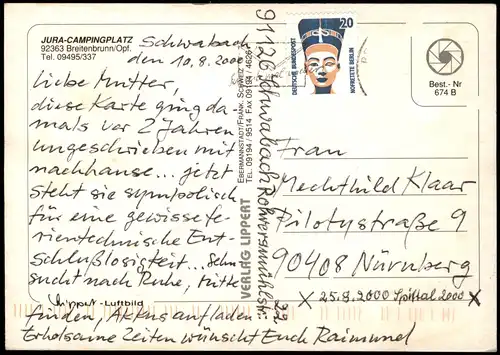 JURA-CAMPINGPLATZ
92363 Breitenbrunn/Opf.
Tel. 09495/337
Schwabach
den 10.8.2000
Liebe Mutter,
diese Karte ging da-
mals vor 2 Jahren
ungeschrieben mit
nachhause... jetzt
steht sie symbolisch
für eine gewisse fe-
rientechnische Ent-
schlußlosigkeit... Sehn
sucht nach Ruhe, Tritte
Lippert-Luftbild
finden, Akkus aufladen
Erholsame Zeiten wünscht Euch Raimund
91126 Schwabach Rohrersmühlstr. 22
VERLAG LIPPERT
EBERMANNSTADT/FRÄNK. SCHWEIZ
TEL. 09194 / 9514 FAX 09194 / 4626
20
DEUTSCHE BUNDESPOST
NOFRETETE BERLIN
Best.- Nr
674 B
Frau
Mechthild Klaar
Pilotystraße 9
90408 Nürnberg
x 25.9.2000 Spittal 2000 x